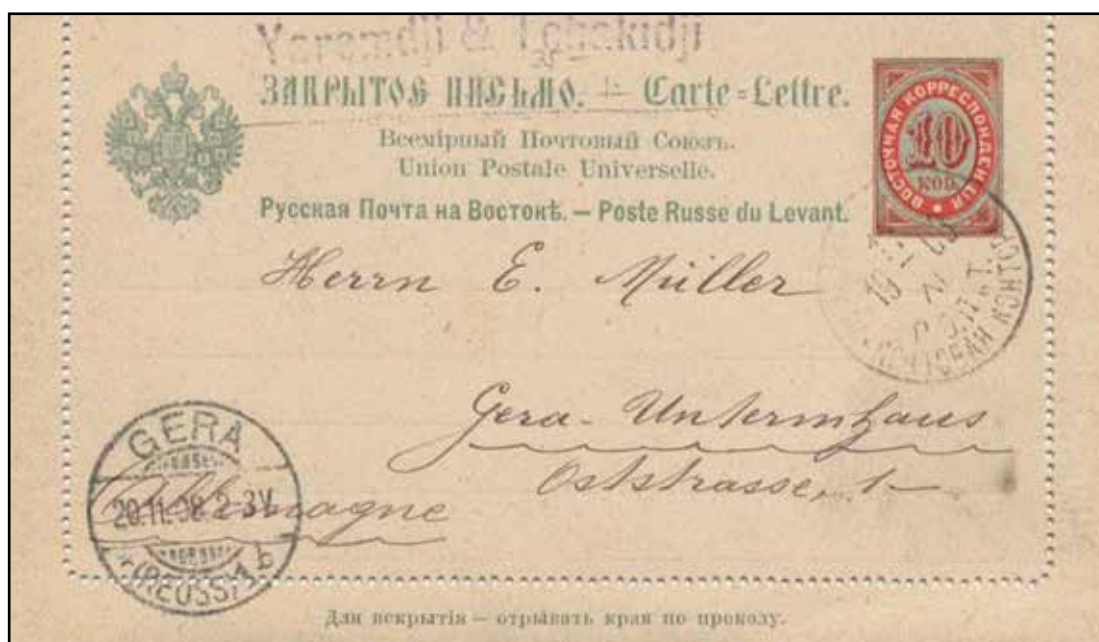 Yaremdji & Tchakidji
ЗАКРЫТОЕ ПИСЬМО. — Carte-Lettre.
Всемірный Почтовый Союзъ.
Union Postale Universelle.
Русская Почта на Востокѣ. — Poste Russe du Levant.
ВОСТОЧНАЯ КОРРЕСПОНДЕНЦІЯ
10
КОП.
Herrn E. Müller
Gera-Untermhaus
Oststrasse, 1
Allemagne
GERA
20.11.98.2-3V.
(REUSS) 1 b
Для вскрытія — отрывать края по проколу.